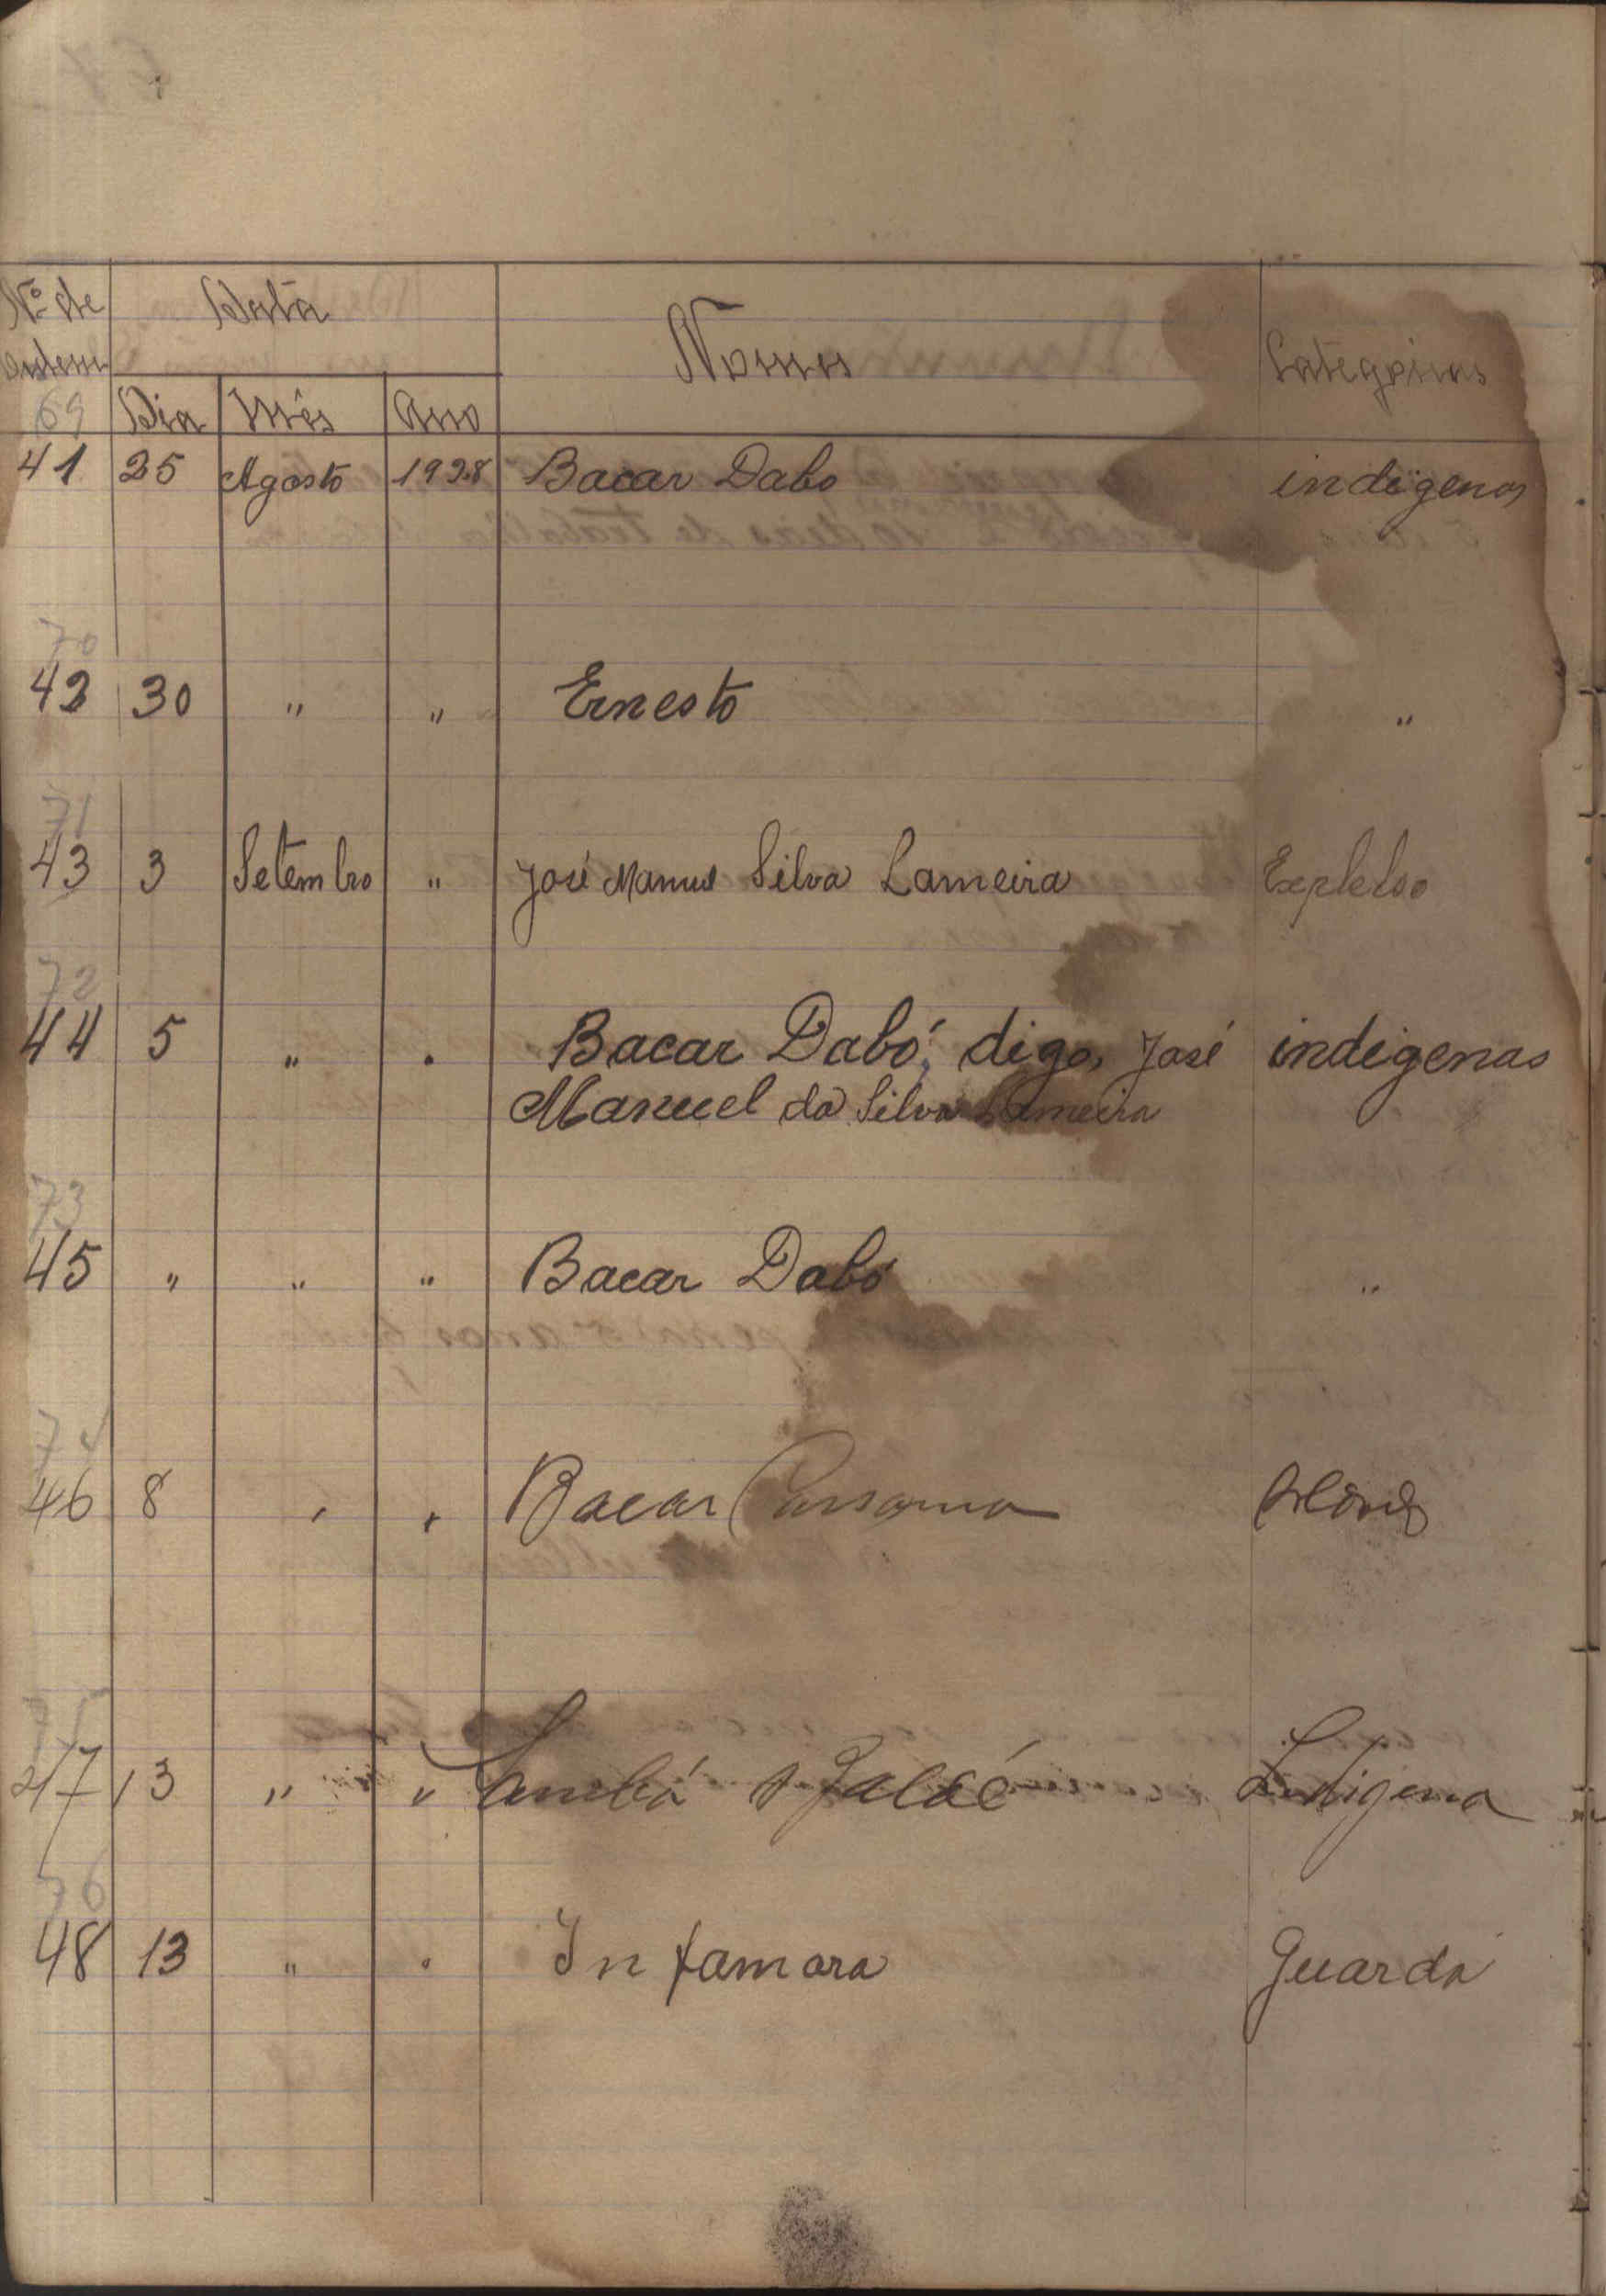 Nº de Data Nomes Categorias
ordem
69 Dia Mês Ano
41 25 Agosto 1928 Bacar Dabo indigenas
70
42 30 " " Ernesto "
71
43 3 Setembro " José Manuel Silva Lameira
72
44 5 " " Bacar Dabó, digo, José indigenas
Manuel da Silva Lameira
73
45 " " " Bacar Dabó "
74
46 8 " " Bacar
75
47 13 " " Indigena
76
48 13 " " Infamara Guarda